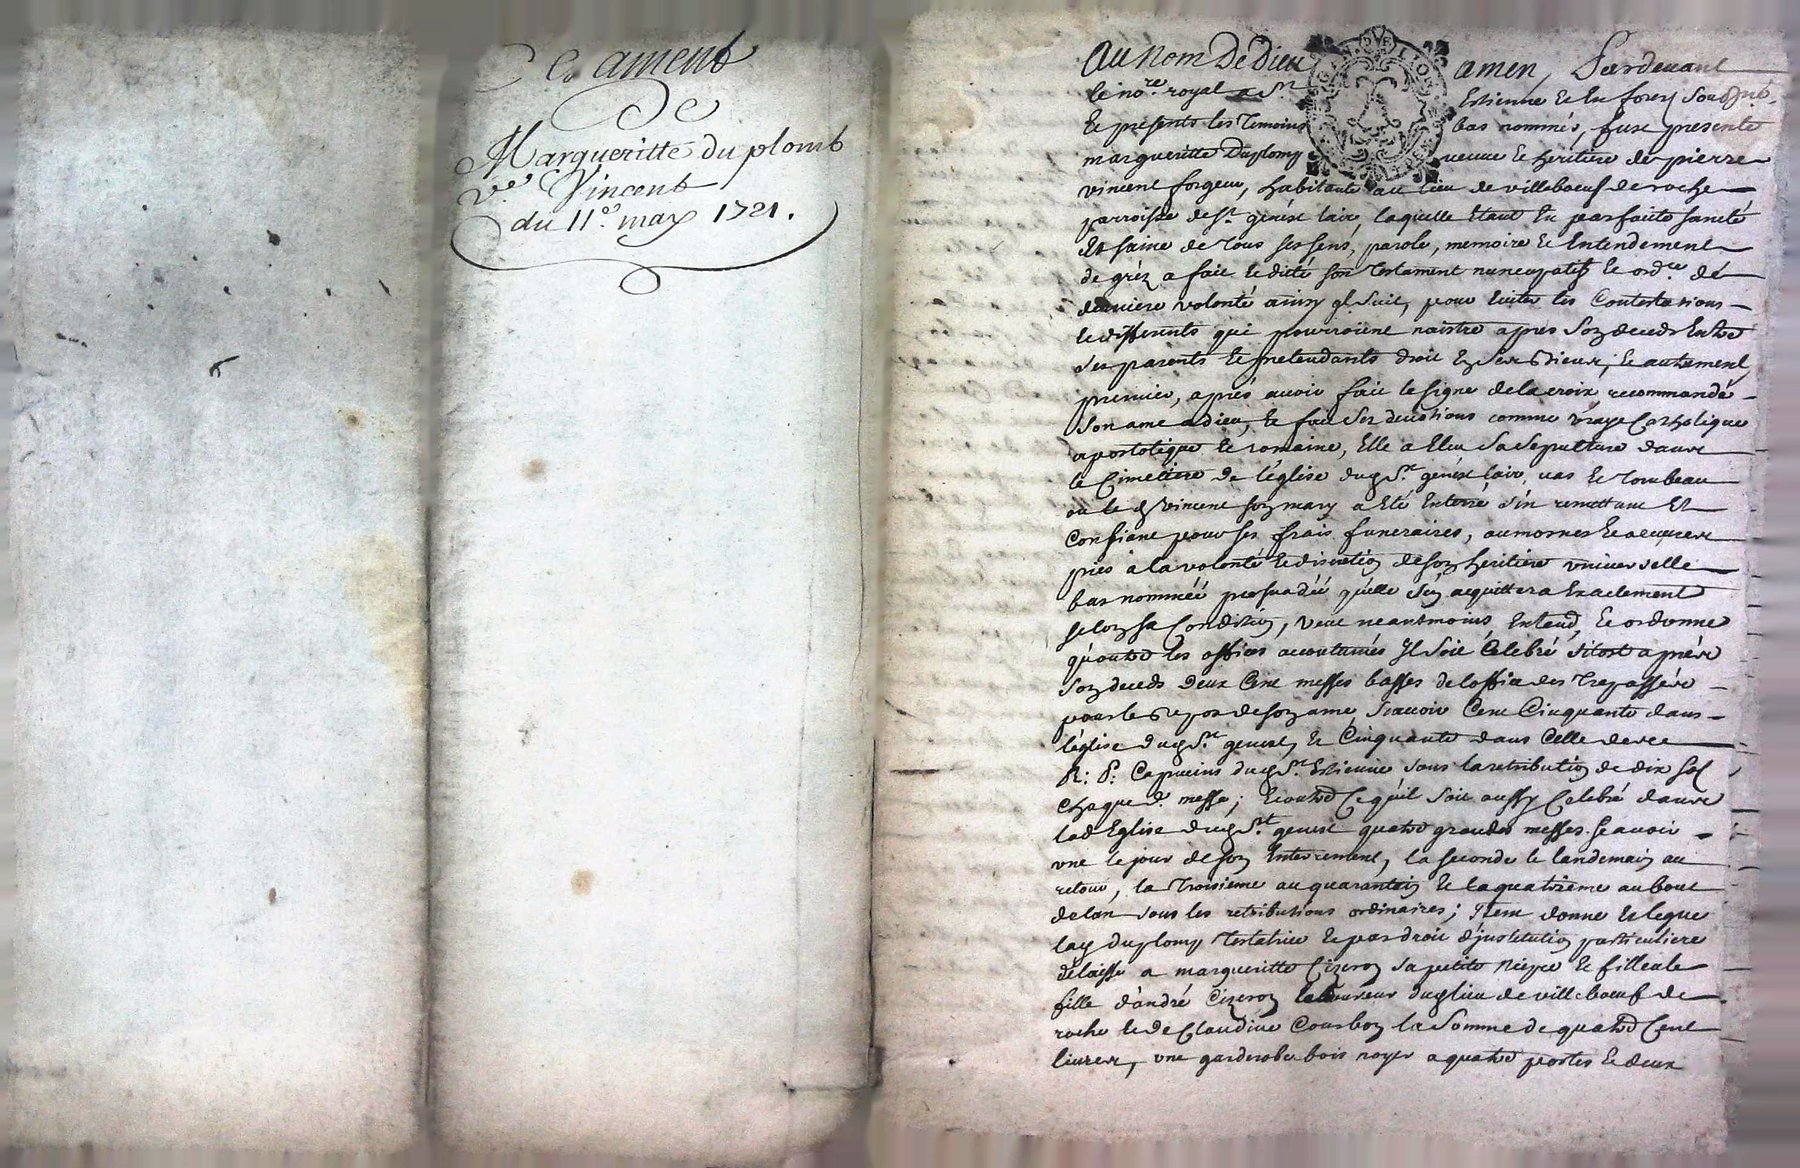 Testament
De
Margueritte du plomb
v.e Vincent
du 11e. may 1721.
Au Nom De Dieu amen, Pardevant
le no.re royal a St Estienne & en forez sousig.né
Et présents les Temoins bas nommés, fust presente
margueritte Duplomp veuve & heritiere de pierre
vincent forgeur, habitante au lieu de villebœuf de roche
parroisse de St. genest lair, laquelle Etant En parfaite santé
Et saine de Tous ses sens, parole, memoire & Entendement
de gréz a fait & dicté son Testament nuncupatif & ord.re de
derniere volonté ainsy q.l suit, pour Eviter les Contestations
& differents qui pourroient naistre apres son deceds Entre
ses parents & pretendants droit En ses Dieux, & autrement
premier, aprés avoir fait le signe de la croix recommandé
son ame a dieu, & fait ses devotions comme vraye Catholique
apostolique & romaine, Elle a Eleu sa sepulture dans
le Cimetiere De l'église dud St. genést lair, vas & Tombeau
ou led Vincent son mary a Eté Enterré s'en remettant Et
Confiant pour ses frais funeraires, aumosnes & œuvres
pies à la volonté & discretion de son heritiere vniverselle
bas nommée persuadée qu'elle s'en acquittera Exactement
selon sa Condition, veut neantmoins Entend, & ordonne
qu'outre les offices accoutumés Il soit Celebré sitost aprés
son deceds Deux Cent messes basses de l'office des Trepassés
pour le Repos de son ame, scavoir Cent Cinquante dans
l'église dud St. genest, & Cinquante dans Celle des
R: P: Capucins dud St. Estienne sous la retribution de dix sol
Chaque d. messe; & outre Ce qu'il soit aussy Celebré dans
lad Eglise dud St. genest quatre grandes messes scavoir
vne le jour de son Enterrement, la seconde le landemain au
retour, la Troisieme au quarantain & la quatrieme au bout
de l'an sous les retributions ordinaires; Item donne & legue
lad duplomp Testatrice & par droit d'institution particuliere
délaisse a margueritte Cizeron sa petite niepce & filleule
fille d'andré Cizeron laboureur dud lieu de villebœuf de
roche & de Claudine Courbon la somme de quatre Cent
livres, vne garderobe bois noyer a quatre portes & deux